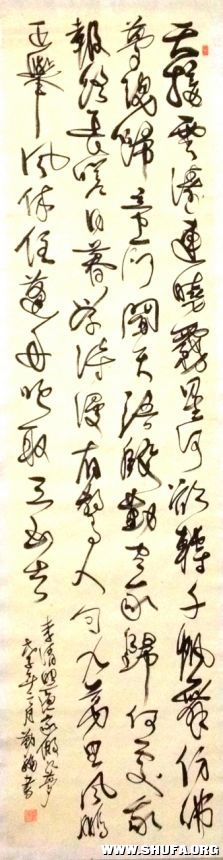 天接雲濤連曉霧星河欲轉千帆舞仿佛
夢魂歸帝所聞天語殷勤問我歸何處我
報路長嗟日暮學詩漫有驚人句九萬里風鵬
正舉風休住蓬舟吹取三山去
李清照漁家傲記夢
戊子年二月書
WWW.SHUFA.ORG